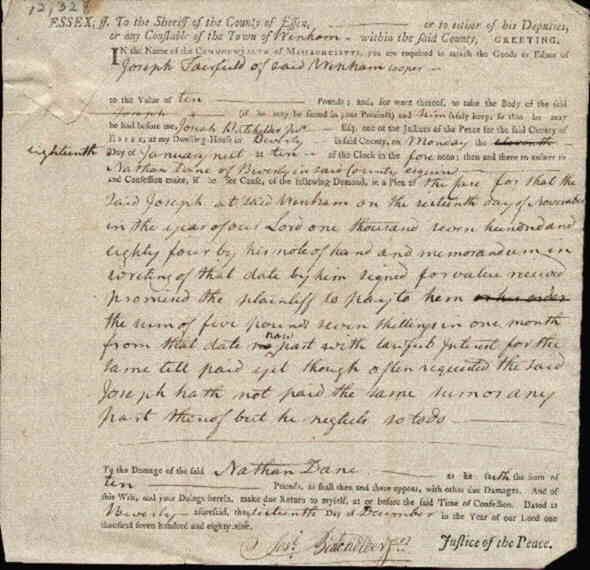 12,328
ESSEX, ss. To the Sheriff of the County of Essex, or to either of his Deputies,
or any Constable of the Town of Wenham within the said County, GREETING.
IN the Name of the COMMONWEALTH of MASSACHUSETTS, you are required to attach the Goods or Estate of
Joseph Fairfield of said Wenham cooper
to the Value of ten Pounds; and, for want thereof, to take the Body of the said
Joseph (if he may be found in your Precinct) and him safely keep, so that he may
be had before me, Esq. one of the Justices of the Peace for the said County of
ESSEX, at my Dwelling-House in Beverly in said County, on Monday the eleventh
eighteenth Day of January next at ten of the Clock in the fore noon; then and there to answer to
Nathan Dane of Beverly in said County esquire
and Confession make, if he see Cause, of the following Demand, in a Plea of the case for that the
said Joseph at said Wenham on the sixteenth day of November
in the year of our Lord one thousand seven hundred and
eighty four by his note of hand and memorandum in
writing of that date by him signed for value received
promised the plaintiff to pay to him or his order
the sum of five pounds seven shillings in one month
from that date now past with lawful Interest for the
same till paid yet though often requested the said
Joseph hath not paid the same sum or any
part thereof but he neglects so to do
To the Damage of the said Nathan Dane as he saith the sum of
ten Pounds, as shall then and there appear, with other due Damages. And of
this Writ, and your Doings herein, make due Return to myself, at or before the said Time of Confession. Dated at
Beverly aforesaid, the sixteenth Day of December in the Year of our Lord one
thousand seven hundred and eighty-nine.
Justice of the Peace.